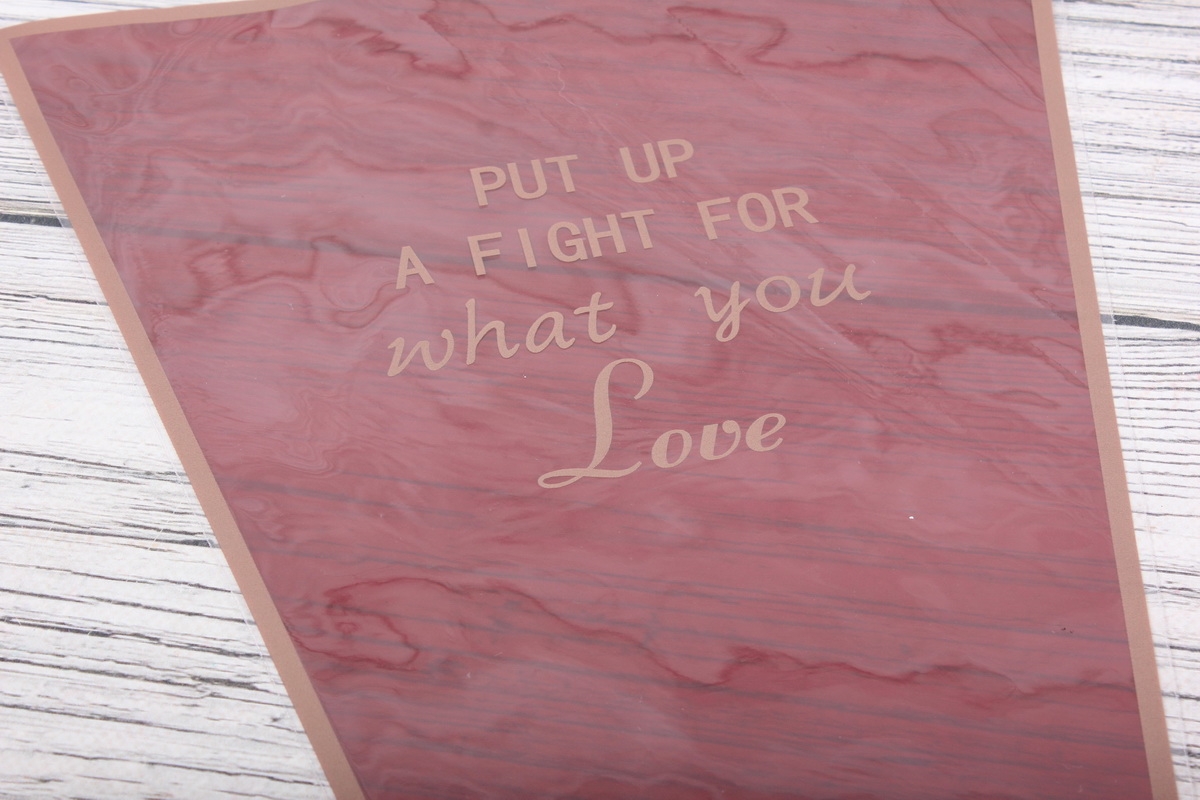 PUT UP
A FIGHT FOR
what you
Love